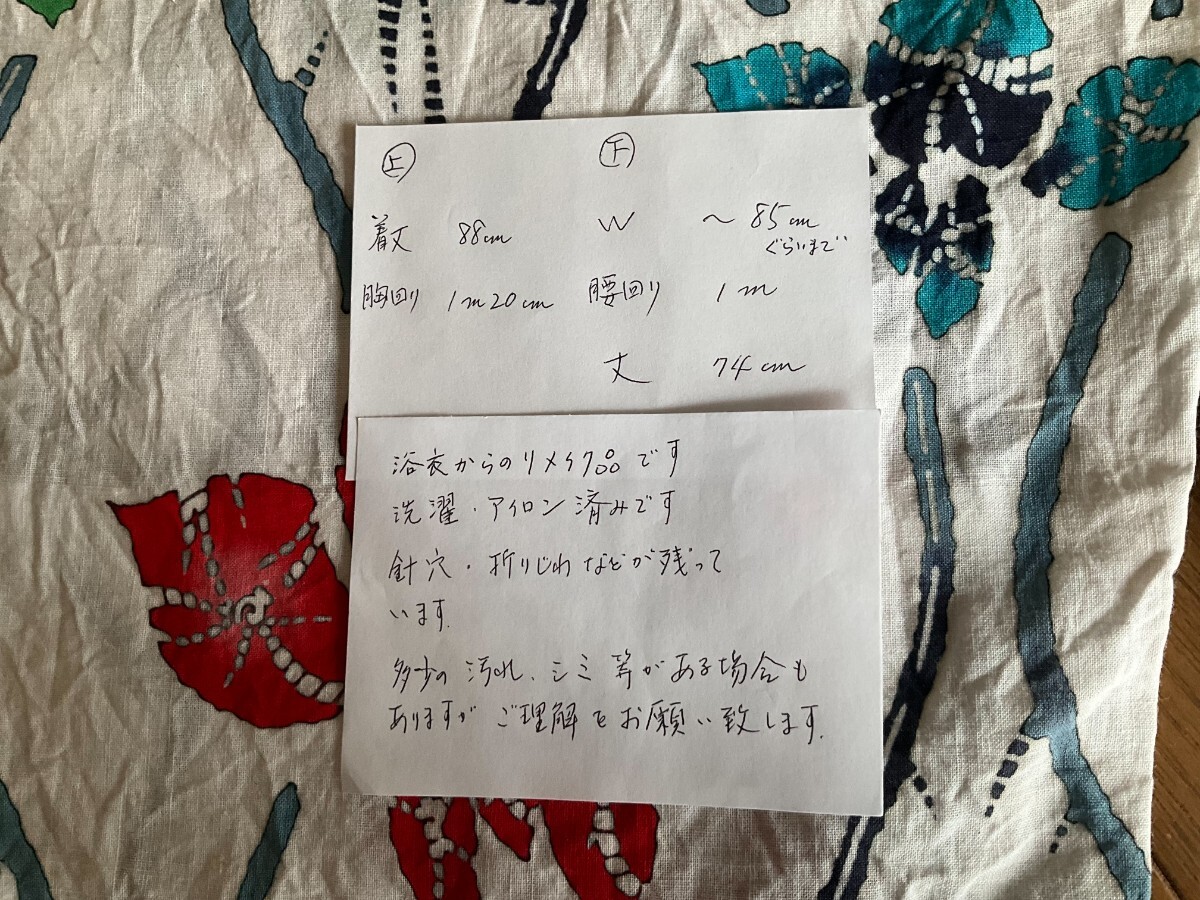 上 下
着丈 88cm W 〜85cm
ぐらいまで
胸回り 1m20cm 腰回り 1m
丈 74cm
浴衣からのリメイク品です
洗濯・アイロン済みです
針穴・折りじわなどが残って
います.
多少の汚れ、シミ等がある場合も
ありますが ご理解をお願い致します.